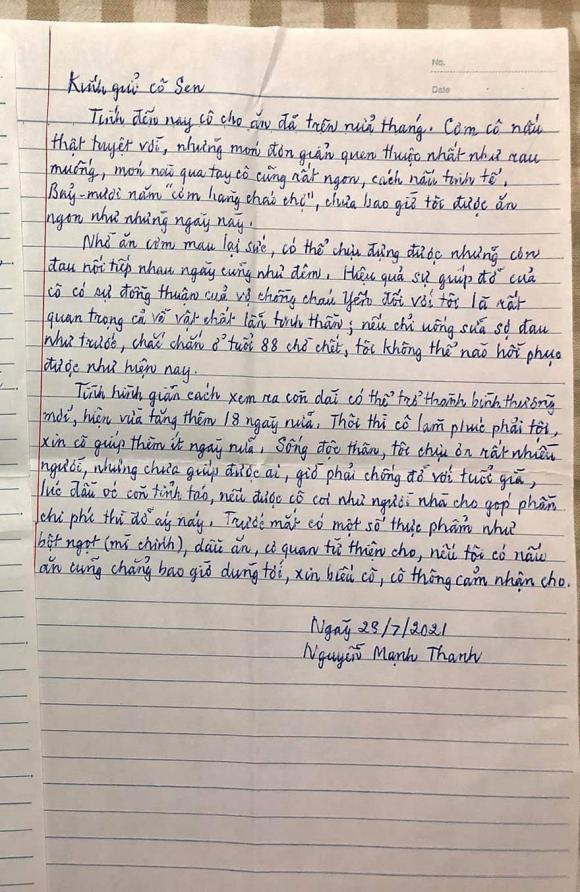 No.
Date
Kính gửi cô Sen
Tính đến nay cô cho ăn đã trên nửa tháng. Cơm cô nấu
thật tuyệt vời, những món đơn giản quen thuộc nhất như rau
muống, món nào qua tay cô cũng rất ngon, cách nấu tinh tế.
Bảy-mươi năm "cơm hàng cháo chợ", chưa bao giờ tôi được ăn
ngon như những ngày này.
Nhờ ăn cơm mau lại sức, có thể chịu đựng được những cơn
đau nối tiếp nhau ngày cũng như đêm. Hiệu quả sự giúp đỡ của
cô có sự đồng thuận của vợ chồng cháu Yến đối với tôi là rất
quan trọng cả về vật chất lẫn tinh thần; nếu chỉ uống sữa sợ đau
như trước, chắc chắn ở tuổi 88 chờ chết, tôi không thể nào hồi phục
được như hiện nay.
Tình hình giãn cách xem ra còn dài có thể trở thành bình thường
mới, hiện vừa tăng thêm 18 ngày nữa. Thôi thì cô làm phúc phải tội,
xin cô giúp thêm ít ngày nữa. Sống độc thân, tôi chịu ơn rất nhiều
người, nhưng chưa giúp được ai, giờ phải chống đỡ với tuổi già,
lúc đầu óc còn tỉnh táo, nếu được cô coi như người nhà cho góp phần
chi phí thì đỡ áy náy. Trước mắt có một số thực phẩm như
bột ngọt (mì chính), dầu ăn, cơ quan từ thiện cho, nếu tôi có nấu
ăn cũng chẳng bao giờ dùng tới, xin biếu cô, cô thông cảm nhận cho.
Ngày 28/7/2021
Nguyễn Mạnh Thanh